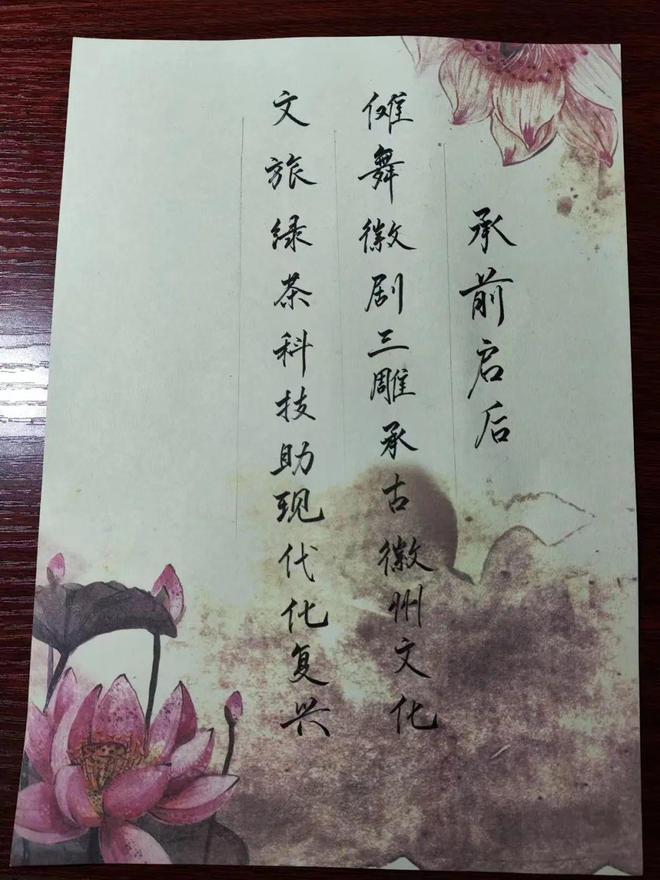 承前启后
傩舞徽剧三雕承古徽州文化
文旅绿茶科技助现代化复兴